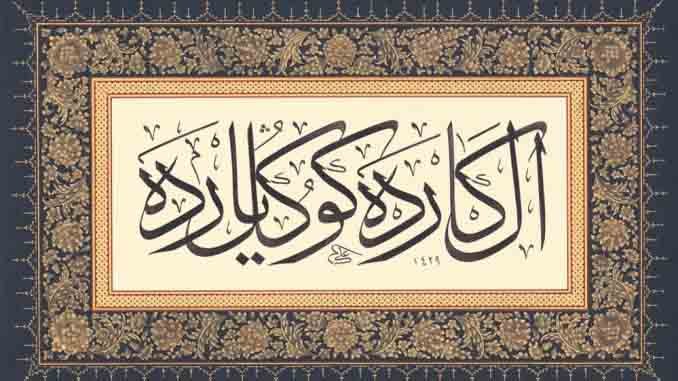 ال كارده كوڭُل يارده
١٤٢٩